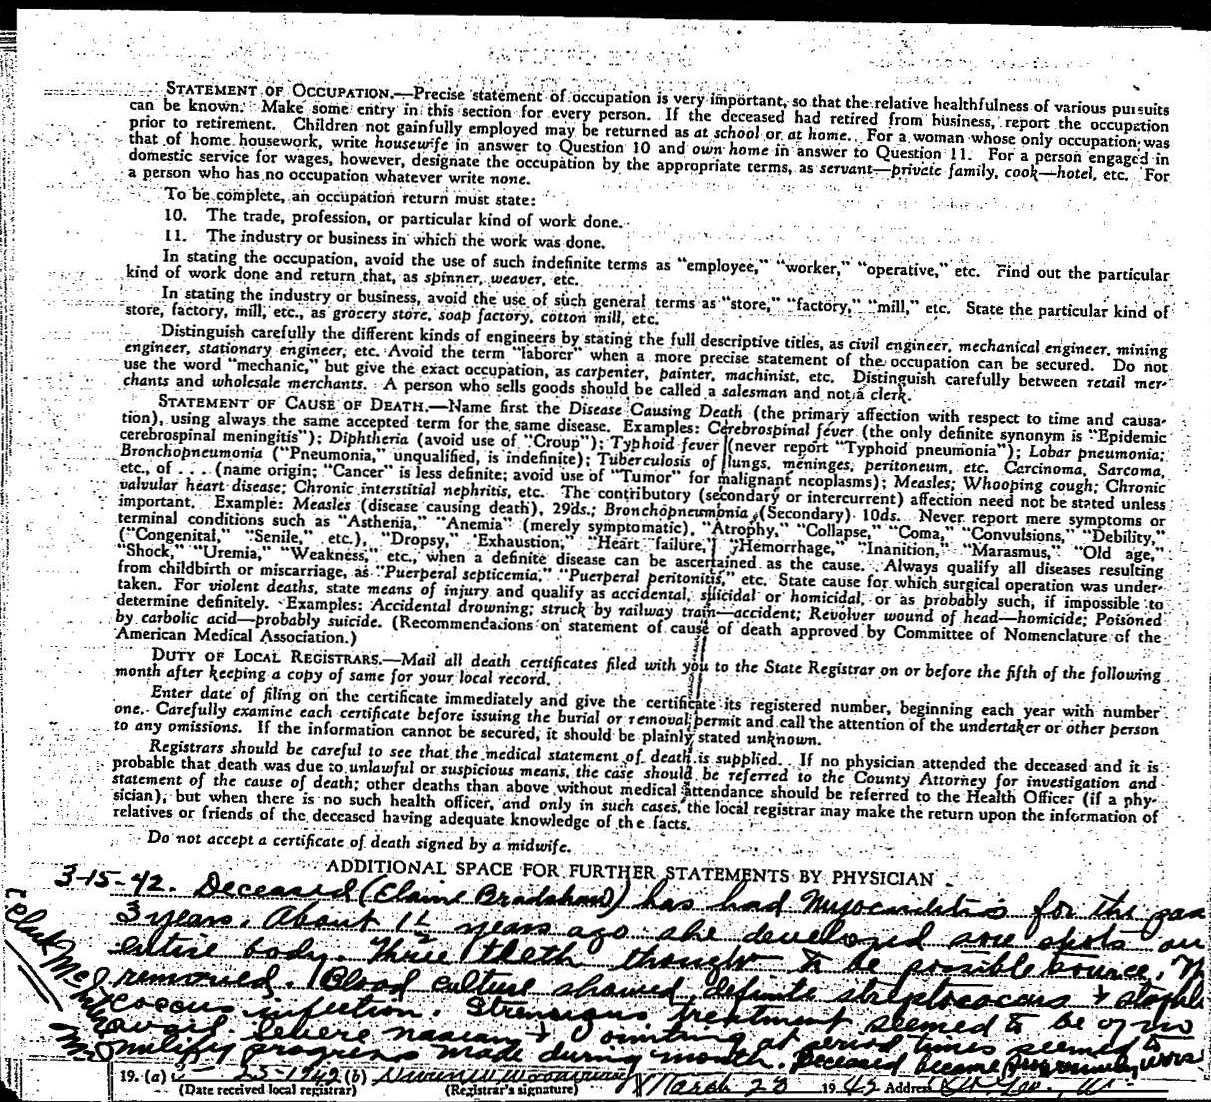 STATEMENT OF OCCUPATION.—Precise statement of occupation is very important, so that the relative healthfulness of various pursuits
can be known. Make some entry in this section for every person. If the deceased had retired from business, report the occupation
prior to retirement. Children not gainfully employed may be returned as at school or at home. For a woman whose only occupation was
that of home housework, write housewife in answer to Question 10 and own home in answer to Question 11. For a person engaged in
domestic service for wages, however, designate the occupation by the appropriate terms, as servant—private family, cook—hotel, etc. For
a person who has no occupation whatever write none.
To be complete, an occupation return must state:
10. The trade, profession, or particular kind of work done.
11. The industry or business in which the work was done.
In stating the occupation, avoid the use of such indefinite terms as "employee," "worker," "operative," etc. Find out the particular
kind of work done and return that, as spinner, weaver, etc.
In stating the industry or business, avoid the use of such general terms as "store," "factory," "mill," etc. State the particular kind of
store, factory, mill, etc., as grocery store, soap factory, cotton mill, etc.
Distinguish carefully the different kinds of engineers by stating the full descriptive titles, as civil engineer, mechanical engineer, mining
engineer, stationary engineer, etc. Avoid the term "laborer" when a more precise statement of the occupation can be secured. Do not
use the word "mechanic," but give the exact occupation, as carpenter, painter, machinist, etc. Distinguish carefully between retail mer-
chants and wholesale merchants. A person who sells goods should be called a salesman and not a clerk.
STATEMENT OF CAUSE OF DEATH.—Name first the Disease Causing Death (the primary affection with respect to time and causa-
tion), using always the same accepted term for the same disease. Examples: Cerebrospinal fever (the only definite synonym is "Epidemic
cerebrospinal meningitis"); Diphtheria (avoid use of "Croup"); Typhoid fever (never report "Typhoid pneumonia"); Lobar pneumonia;
Bronchopneumonia ("Pneumonia," unqualified, is indefinite); Tuberculosis of lungs, meninges, peritoneum, etc. Carcinoma, Sarcoma,
etc., of . . . (name origin; "Cancer" is less definite; avoid use of "Tumor" for malignant neoplasms); Measles; Whooping cough; Chronic
valvular heart disease; Chronic interstitial nephritis, etc. The contributory (secondary or intercurrent) affection need not be stated unless
important. Example: Measles (disease causing death), 29ds.; Bronchopneumonia (Secondary) 10ds. Never report mere symptoms or
terminal conditions such as "Asthenia," "Anemia" (merely symptomatic), "Atrophy," "Collapse," "Coma," "Convulsions," "Debility,"
("Congenital," "Senile," etc.), "Dropsy," "Exhaustion," "Heart failure," "Hemorrhage," "Inanition," "Marasmus," "Old age,"
"Shock," "Uremia," "Weakness," etc., when a definite disease can be ascertained as the cause. Always qualify all diseases resulting
from childbirth or miscarriage, as "Puerperal septicemia," "Puerperal peritonitis," etc. State cause for which surgical operation was under-
taken. For violent deaths, state means of injury and qualify as accidental, suicidal or homicidal, or as probably such, if impossible to
determine definitely. Examples: Accidental drowning; struck by railway train—accident; Revolver wound of head—homicide; Poisoned
by carbolic acid—probably suicide. (Recommendations on statement of cause of death approved by Committee of Nomenclature of the
American Medical Association.)
DUTY OF LOCAL REGISTRARS.—Mail all death certificates filed with you to the State Registrar on or before the fifth of the following
month after keeping a copy of same for your local record.
Enter date of filing on the certificate immediately and give the certificate its registered number, beginning each year with number
one. Carefully examine each certificate before issuing the burial or removal permit and call the attention of the undertaker or other person
to any omissions. If the information cannot be secured, it should be plainly stated unknown.
Registrars should be careful to see that the medical statement of death is supplied. If no physician attended the deceased and it is
probable that death was due to unlawful or suspicious means, the case should be referred to the County Attorney for investigation and
statement of the cause of death; other deaths than above without medical attendance should be referred to the Health Officer (if a phy-
sician), but when there is no such health officer, and only in such cases, the local registrar may make the return upon the information of
relatives or friends of the deceased having adequate knowledge of the facts.
Do not accept a certificate of death signed by a midwife.
ADDITIONAL SPACE FOR FURTHER STATEMENTS BY PHYSICIAN
3-15-42. Deceased (Elaine Bradshaw) has had Myocarditis for the pas
3 years. About 1½ years ago she developed sore spots on
entire body. Three teeth thought to be possible source.
removed. Blood culture showed definite streptococcus + staphlo
coccus infection. Strenuous treatment seemed to be of no
avail. Severe nausea + vomiting at period times seemed to
nullify progress made during month. Deceased became progressively worse
19. (a) 25-1942 (b) March 28 1942 Address
(Date received local registrar) (Registrar's signature)